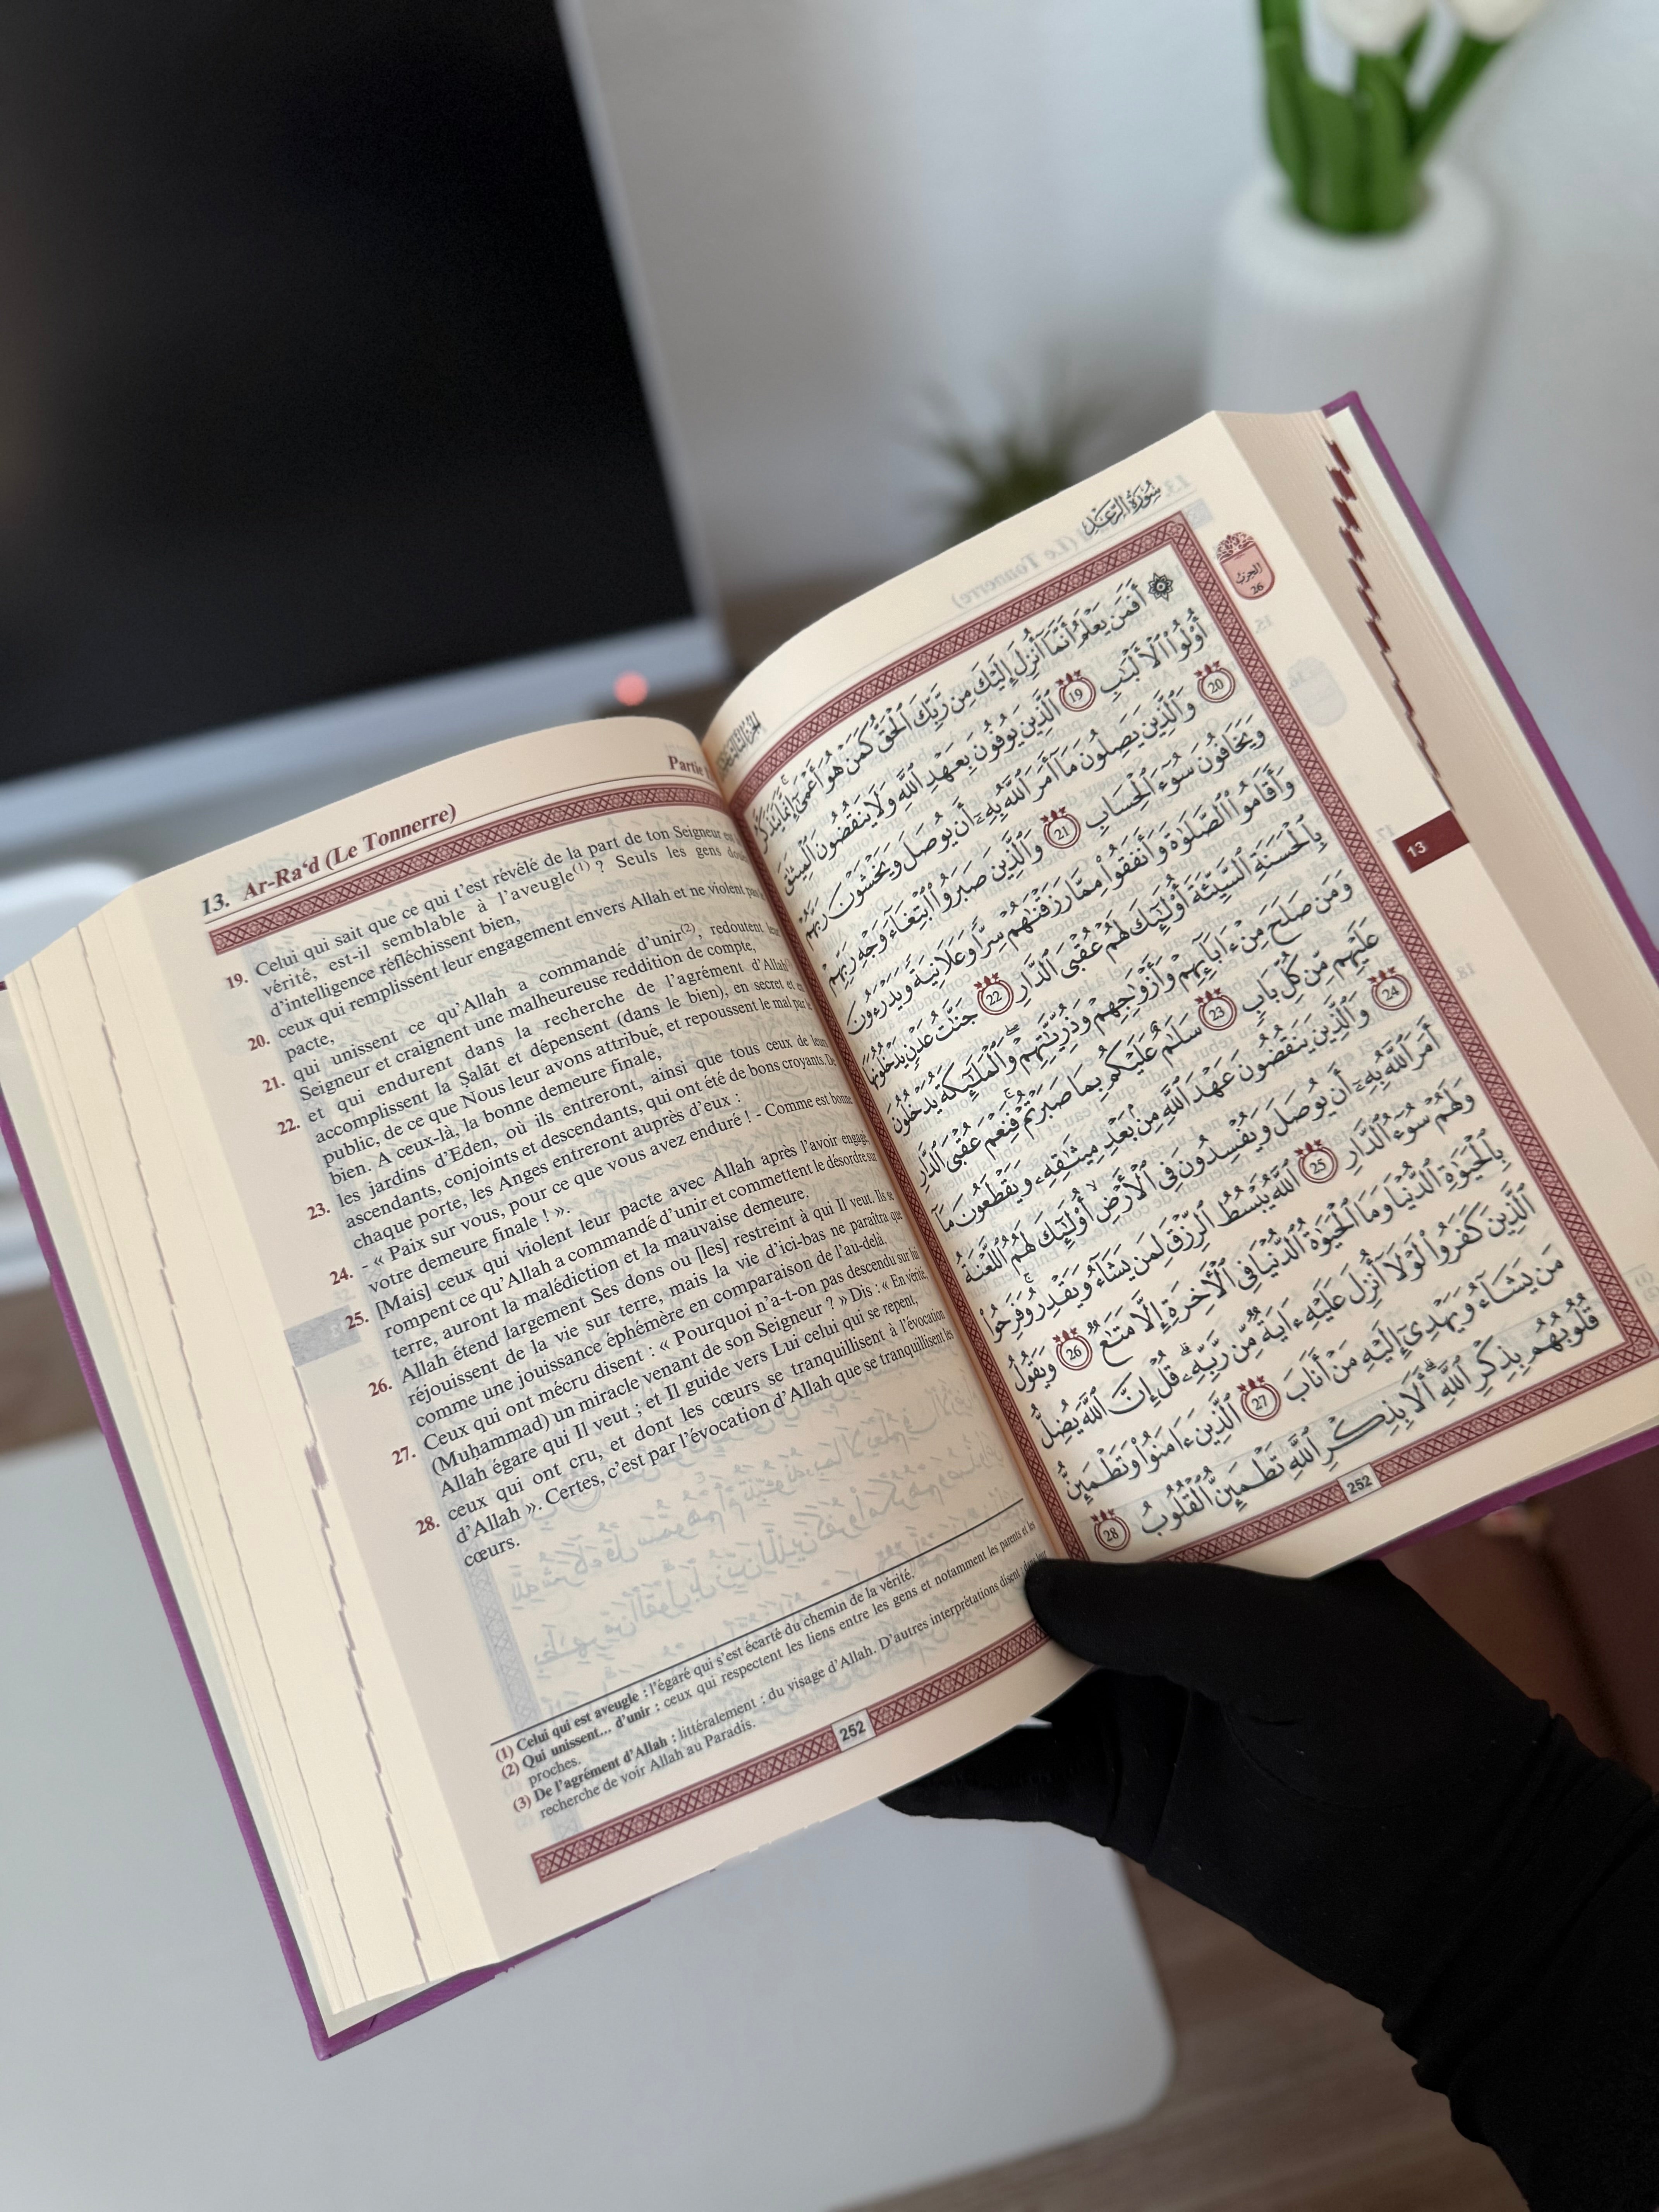 13. Ar-Ra‘d (Le Tonnerre) Partie
19. Celui qui sait que ce qui t’est révélé de la part de ton Seigneur
vérité, est-il semblable à l’aveugle(1) ? Seuls les gens
d’intelligence réfléchissent bien,
20. ceux qui remplissent leur engagement envers Allah et ne violent pas
pacte,
21. qui unissent ce qu’Allah a commandé d’unir(2), redoutent
Seigneur et craignent une malheureuse reddition de compte,
22. et qui endurent dans la recherche de l’agrément d’Allah
accomplissent la Ṣalāt et dépensent (dans le bien), en secret et
public, de ce que Nous leur avons attribué, et repoussent le mal par le
bien. A ceux-là, la bonne demeure finale,
23. les jardins d’Eden, où ils entreront, ainsi que tous ceux de leurs
ascendants, conjoints et descendants, qui ont été de bons croyants. De
chaque porte, les Anges entreront auprès d’eux :
24. - « Paix sur vous, pour ce que vous avez enduré ! - Comme est bonne
votre demeure finale ! ».
25. [Mais] ceux qui violent leur pacte avec Allah après l’avoir engagé,
rompent ce qu’Allah a commandé d’unir et commettent le désordre sur
terre, auront la malédiction et la mauvaise demeure.
26. Allah étend largement Ses dons ou [les] restreint à qui Il veut. Ils se
réjouissent de la vie sur terre, mais la vie d’ici-bas ne paraîtra que
comme une jouissance éphémère en comparaison de l’au-delà.
27. Ceux qui ont mécru disent : « Pourquoi n’a-t-on pas descendu sur lui
(Muḥammad) un miracle venant de son Seigneur ? » Dis : « En vérité,
Allah égare qui Il veut ; et Il guide vers Lui celui qui se repent,
28. ceux qui ont cru, et dont les cœurs se tranquillisent à l’évocation
d’Allah ». Certes, c’est par l’évocation d’Allah que se tranquillisent les
cœurs.
(1) Celui qui est aveugle : l’égaré qui s’est écarté du chemin de la vérité.
(2) Qui unissent... d’unir : ceux qui respectent les liens entre les gens et notamment les parents et les
proches.
(3) De l’agrément d’Allah : littéralement : du visage d’Allah. D’autres interprétations disent : dans leur
recherche de voir Allah au Paradis.
252
سُورَةُ الرَّعْدِ
الحزب
26
۞ أَفَمَن يَعْلَمُ أَنَّمَآ أُنزِلَ إِلَيْكَ مِن رَّبِّكَ ٱلْحَقُّ كَمَنْ هُوَ أَعْمَىٰٓ ۚ إِنَّمَا يَتَذَكَّرُ
أُو۟لُوا۟ ٱلْأَلْبَٰبِ 19 ٱلَّذِينَ يُوفُونَ بِعَهْدِ ٱللَّهِ وَلَا يَنقُضُونَ ٱلْمِيثَٰقَ
20 وَٱلَّذِينَ يَصِلُونَ مَآ أَمَرَ ٱللَّهُ بِهِۦٓ أَن يُوصَلَ وَيَخْشَوْنَ رَبَّهُمْ
وَيَخَافُونَ سُوٓءَ ٱلْحِسَابِ 21 وَٱلَّذِينَ صَبَرُوا۟ ٱبْتِغَآءَ وَجْهِ رَبِّهِمْ
وَأَقَامُوا۟ ٱلصَّلَوٰةَ وَأَنفَقُوا۟ مِمَّا رَزَقْنَٰهُمْ سِرًّا وَعَلَانِيَةً وَيَدْرَءُونَ
بِٱلْحَسَنَةِ ٱلسَّيِّئَةَ أُو۟لَٰٓئِكَ لَهُمْ عُقْبَى ٱلدَّارِ 22 جَنَّٰتُ عَدْنٍ يَدْخُلُونَهَا
وَمَن صَلَحَ مِنْ ءَابَآئِهِمْ وَأَزْوَٰجِهِمْ وَذُرِّيَّٰتِهِمْ ۖ وَٱلْمَلَٰٓئِكَةُ يَدْخُلُونَ
عَلَيْهِم مِّن كُلِّ بَابٍ 23 سَلَٰمٌ عَلَيْكُم بِمَا صَبَرْتُمْ ۚ فَنِعْمَ عُقْبَى ٱلدَّارِ
24 وَٱلَّذِينَ يَنقُضُونَ عَهْدَ ٱللَّهِ مِنۢ بَعْدِ مِيثَٰقِهِۦ وَيَقْطَعُونَ مَآ
أَمَرَ ٱللَّهُ بِهِۦٓ أَن يُوصَلَ وَيُفْسِدُونَ فِى ٱلْأَرْضِ ۙ أُو۟لَٰٓئِكَ لَهُمُ ٱللَّعْنَةُ
وَلَهُمْ سُوٓءُ ٱلدَّارِ 25 ٱللَّهُ يَبْسُطُ ٱلرِّزْقَ لِمَن يَشَآءُ وَيَقْدِرُ ۚ وَفَرِحُوا۟
بِٱلْحَيَوٰةِ ٱلدُّنْيَا وَمَا ٱلْحَيَوٰةُ ٱلدُّنْيَا فِى ٱلْءَاخِرَةِ إِلَّا مَتَٰعٌ 26 وَيَقُولُ
ٱلَّذِينَ كَفَرُوا۟ لَوْلَآ أُنزِلَ عَلَيْهِ ءَايَةٌ مِّن رَّبِّهِۦ ۗ قُلْ إِنَّ ٱللَّهَ يُضِلُّ
مَن يَشَآءُ وَيَهْدِىٓ إِلَيْهِ مَنْ أَنَابَ 27 ٱلَّذِينَ ءَامَنُوا۟ وَتَطْمَئِنُّ
قُلُوبُهُم بِذِكْرِ ٱللَّهِ ۗ أَلَا بِذِكْرِ ٱللَّهِ تَطْمَئِنُّ ٱلْقُلُوبُ 28
252
13